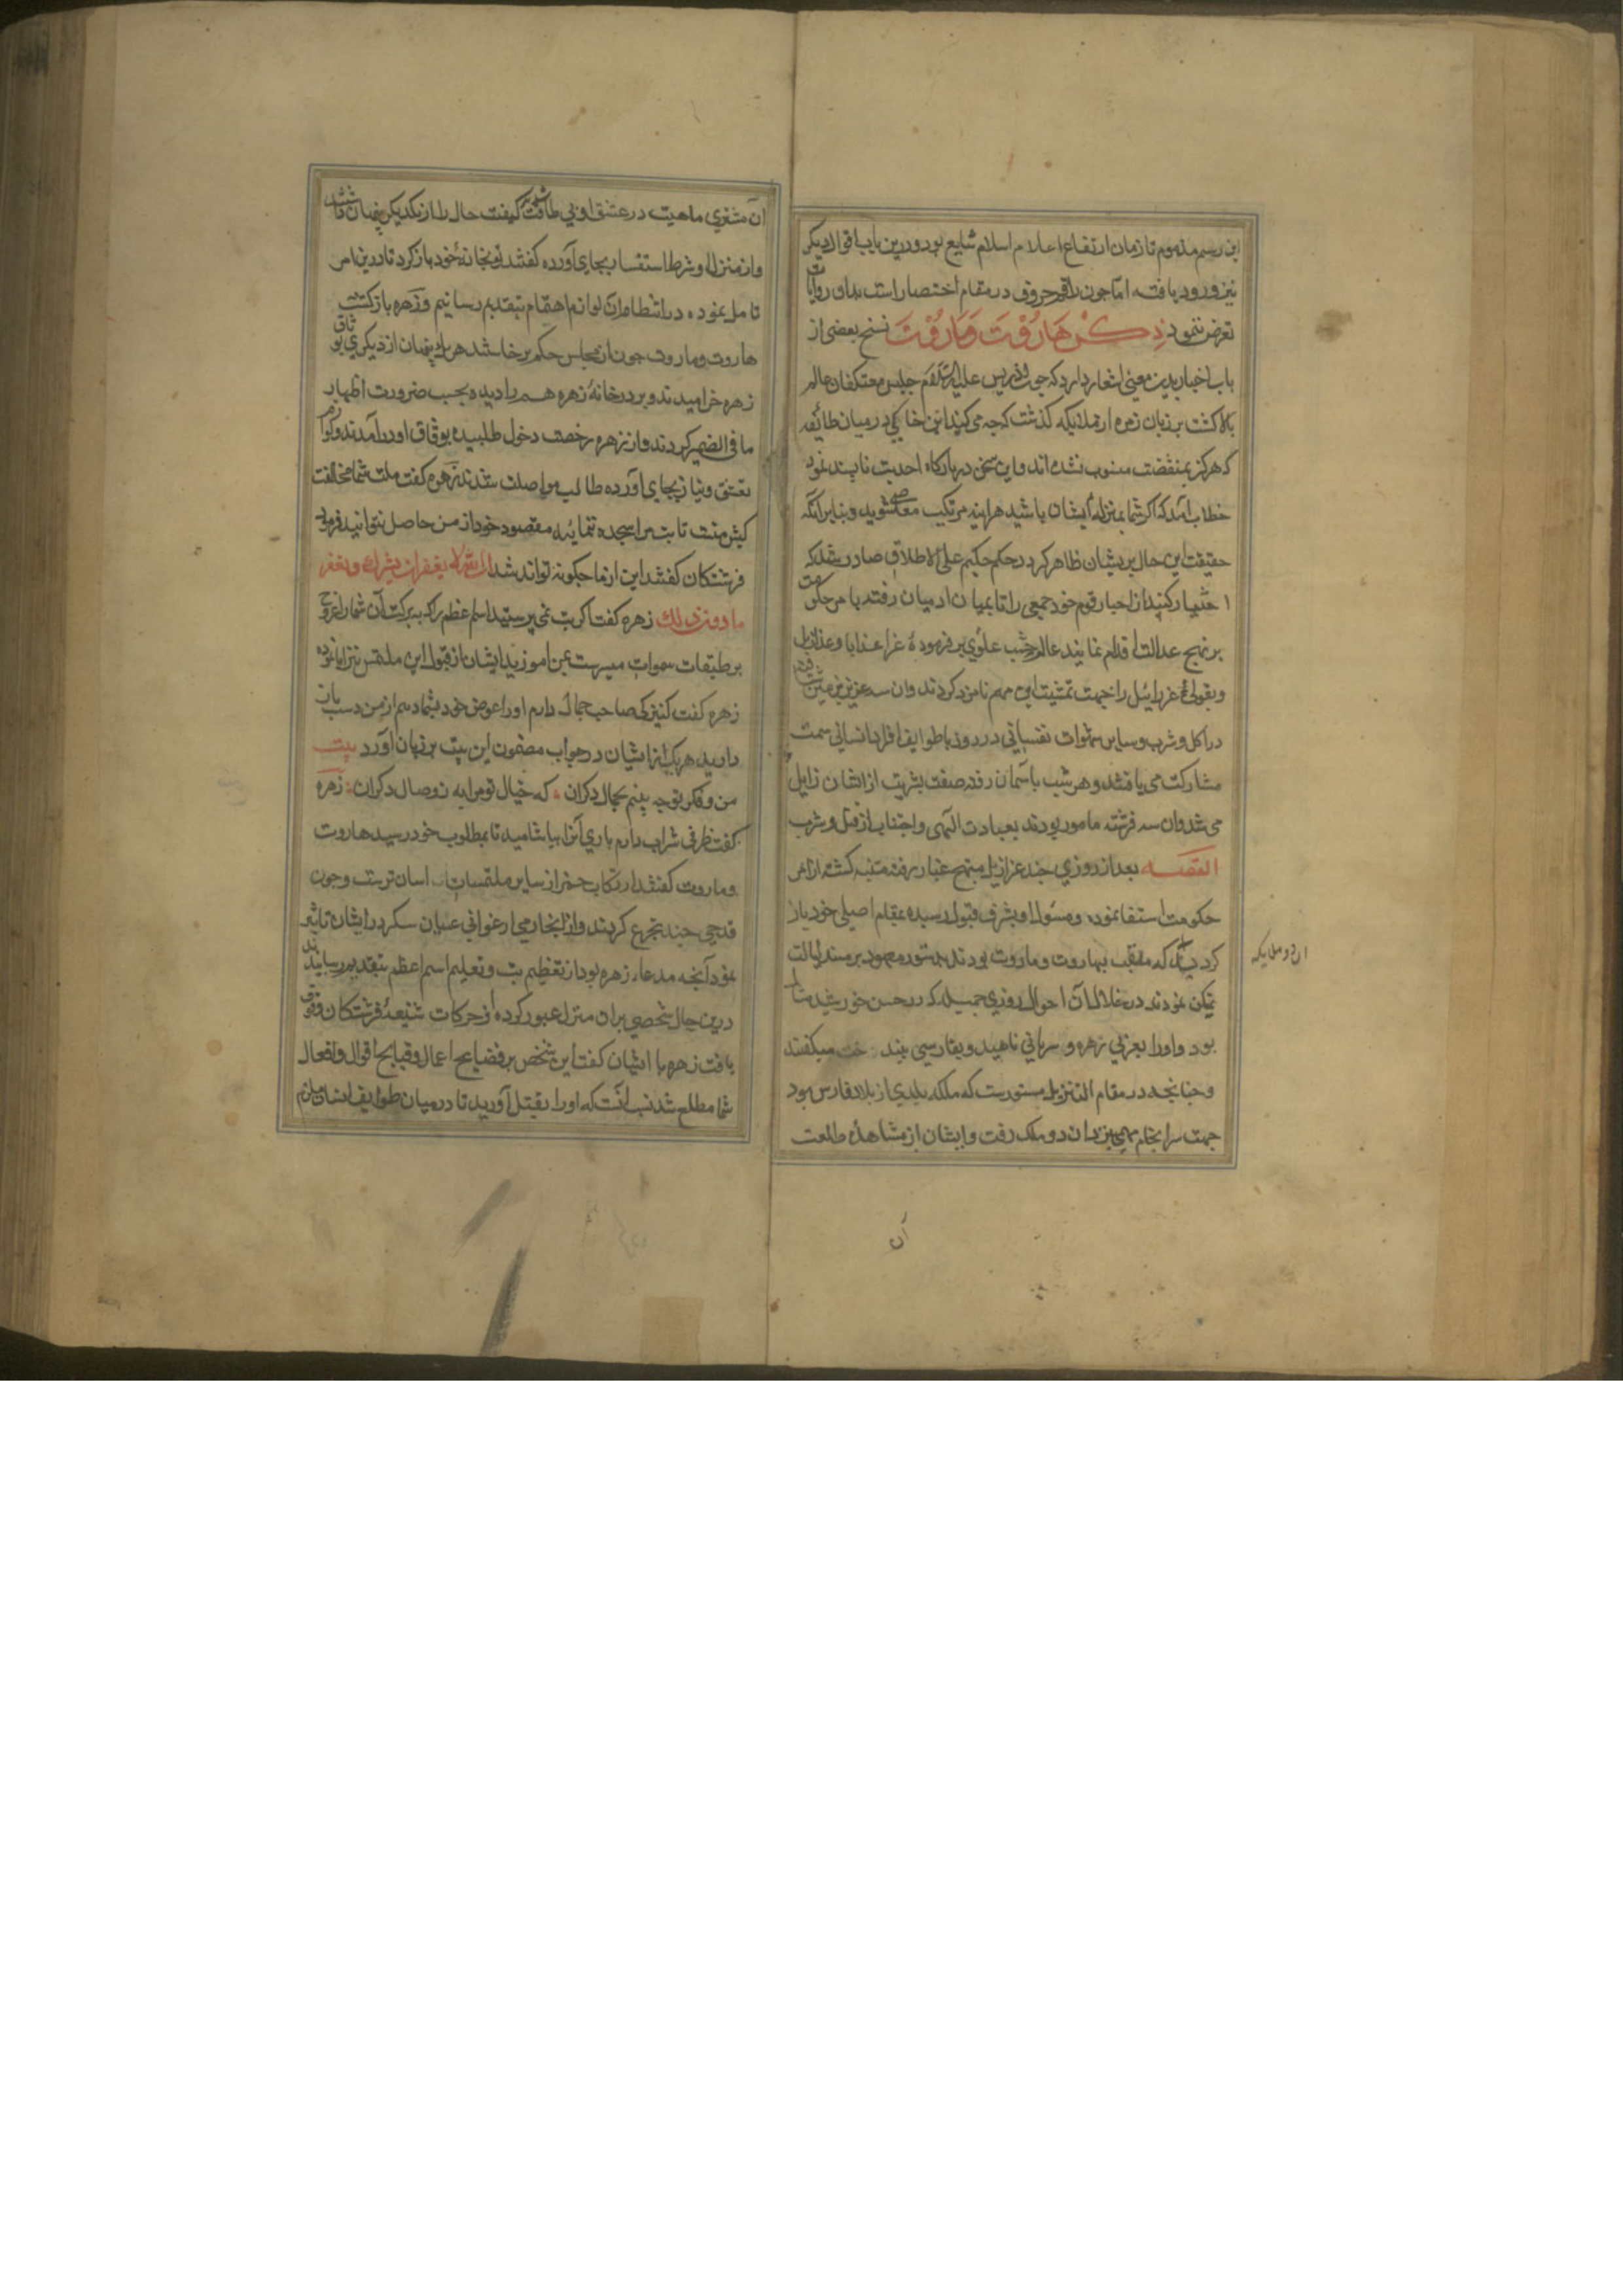 این رسم مذموم تا زمان ارتفاع اعلام اسلام شایع بود و درین باب اقوال دیکر
نیز ورود یافته اما جون راقم حروف در مقام اختصار است بدان روایات
تعرض ننمود ذکر هاروت و ماروت نسخ بعضی از
باب اخبار بدین معنی اشعار دارد که جون ادریس علیه السلام جلیس معتکفان عالم
بالا کشت بر زبان زمره از ملائکه کذشت که جه می کند این خاکی در میان طائفه
که هرکز بمنقصت منسوب نشده اند و این سخن در بارکاه احدیت ناپسند نمود
خطاب آمد که اکر شما بمنزله ایشان باشید هراینه مرتکب معاصی شوید و بنابر آنکه
حقیقت این حال بر ایشان ظاهر کردد حکم حکیم علی الاطلاق صادر شد که
اختیار کنید از احبار قوم خود جمعی را تا بمیان ادمیان رفته بامر حکومت
بر نهج عدالت اقدام نمایند عالم علوی بر فرموده عزا عذابا و عزازیل
و بقولی عزراییل را جهت تمشیت این مهم نامزد کردند وان سه عزیز بزمین
در اکل و شرب و سایر شهوات نفسانی در روز با طوایف افراد انسانی سمت
مشارکت می یافتند و هر شب باسمان رفته صفت بشریت از ایشان زایل
می شد وان سه فرشته مامور بودند بعبادت الهی و اجتناب از قتل و شرب
القصه بعد از روزی جند عزازیل متنبه کشته از امر
حکومت استعفا نموده و مسئول او بشرف قبول رسیده بمقام اصیلی خود باز
کردید که ملقب بهاروت و ماروت بودند بدستور معهود بر مسند ایالت
تمکن نمودند در خلال آن احوال روزی جمیله که در حسن خورشید مثال
بود و اورا بعربی زهره و سریانی ناهید و بفارسی بیدخت میکفتند
و جنانجه در مقام التنزیل مستورست که ملکه بلدی از بلاد فارس بود
جهت سرانجام مهمی نزد ان دو ملک رفت و ایشان از مشاهده طلعت
ان دو ملایکه
آن
ان مشتری ماهیت در عشق او بی طاقت شده کیفیت حال را از یکدیکر پنهان داشتند
و از منزل او شرط استفسار بجای آورده کفتند تو بخانه خود باز کرد تا درین امر
تامل نموده در انتظام ان لوازم اهتمام بتقدیم رسانیم و زهره باز کشت
هاروت و ماروت جون از مجلس حکم برخاستند هر یک پنهان از دیکری بوثاق
زهره خرامیدند و بر در خانه زهره هم را دیده بحسب ضرورت اظهار
ما فی الضمیر کردند و از زهره رخصت دخول طلبیده بوثاق او درآمدند و لوازم
تعشق و نیاز بجای آورده طالب مواصلت شدند زهره کفت ملت شما مخالفت
کیش منست تا بت مرا سجده ننمائید مقصود خود از من حاصل نتوانید فرمود
فرشتکان کفتند این از ما جکونه تواند شد ان الله لا یغفر ان یشرک و یغفر
ما دون ذلک زهره کفت اکر بت نمی پرستید اسم اعظم را که ببرکت آن شما را عروج
بر طبقات سموات میسرست بمن اموزید ایشان از قبول این ملتمس نیز ابا نموده
زهره کفت کنیزکی صاحب جمال دارم اورا عوض خود بشما دهم از من دست باز
دارید هر یک از ایشان در جواب مضمون این بیت بر زبان آورد بیت
من و فکر تو جه بینم بجمال دکران * که خیال تو مرا به ز وصال دکران زهره
کفت ظرفی شراب دارم باری آنرا بیاشامید تا بمطلوب خود رسید هاروت
و ماروت کفتند ارتکاب خمر از سایر ملتمسات اسان ترست و جون
قدحی جند تجرع کردند و از ابخار می ارغوانی سکر در ایشان تاثیر
نمود آنجه مدعاء زهره بود از تعظیم بت و تعلیم اسم اعظم بتقدیم رسانیدند
درین حال شخصی بران منزل عبور کرده از حرکات شنیعه فرشتکان وقوف
یافت زهره با ایشان کفت این شخص بر فضایح اعمال و قبایح اقوال و افعال
شما مطلع شد انست که اورا بقتل آورید تا در میان طوایف انسان ملزم